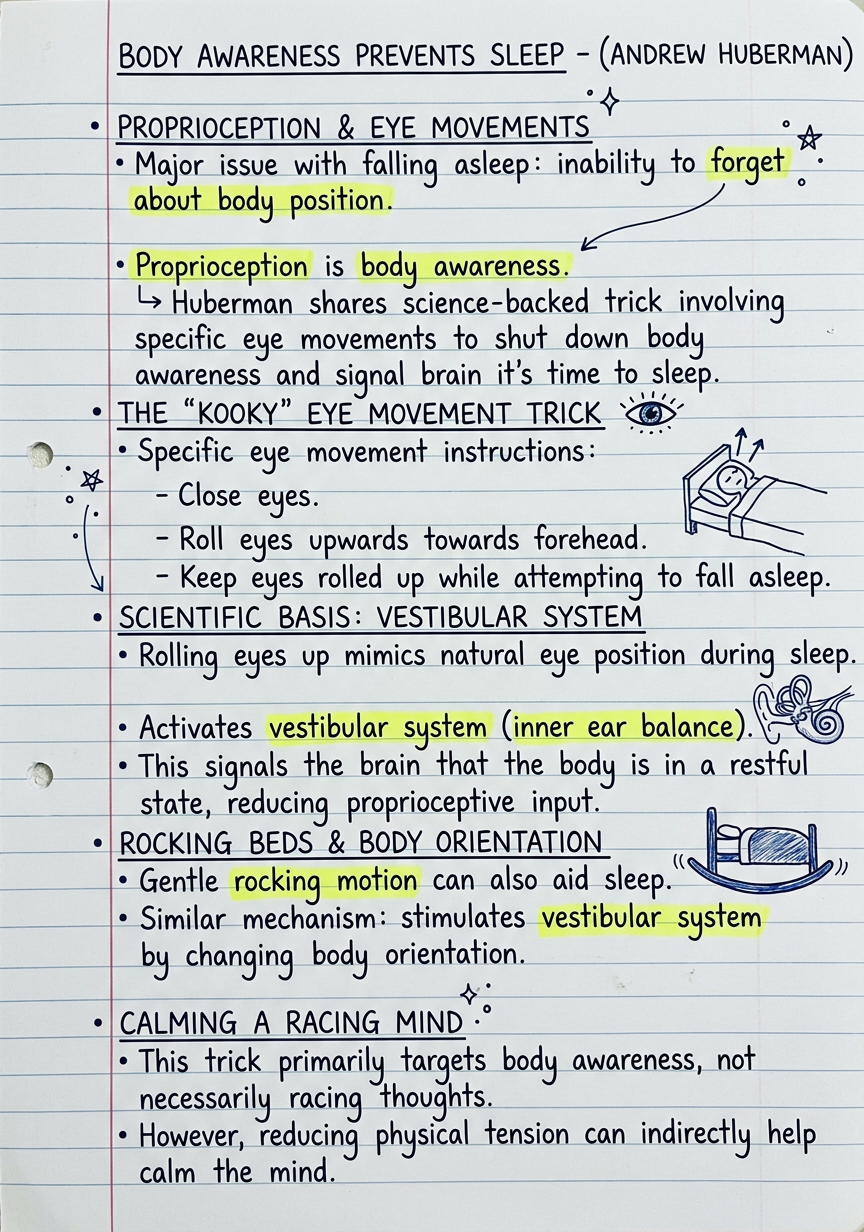 BODY AWARENESS PREVENTS SLEEP - (ANDREW HUBERMAN)
• PROPRIOCEPTION & EYE MOVEMENTS
• Major issue with falling asleep: inability to forget
about body position.
• Proprioception is body awareness.
↳ Huberman shares science-backed trick involving
specific eye movements to shut down body
awareness and signal brain it's time to sleep.
• THE "KOOKY" EYE MOVEMENT TRICK
• Specific eye movement instructions:
- Close eyes.
- Roll eyes upwards towards forehead.
- Keep eyes rolled up while attempting to fall asleep.
• SCIENTIFIC BASIS: VESTIBULAR SYSTEM
• Rolling eyes up mimics natural eye position during sleep.
• Activates vestibular system (inner ear balance).
• This signals the brain that the body is in a restful
state, reducing proprioceptive input.
• ROCKING BEDS & BODY ORIENTATION
• Gentle rocking motion can also aid sleep.
• Similar mechanism: stimulates vestibular system
by changing body orientation.
• CALMING A RACING MIND
• This trick primarily targets body awareness, not
necessarily racing thoughts.
• However, reducing physical tension can indirectly help
calm the mind.